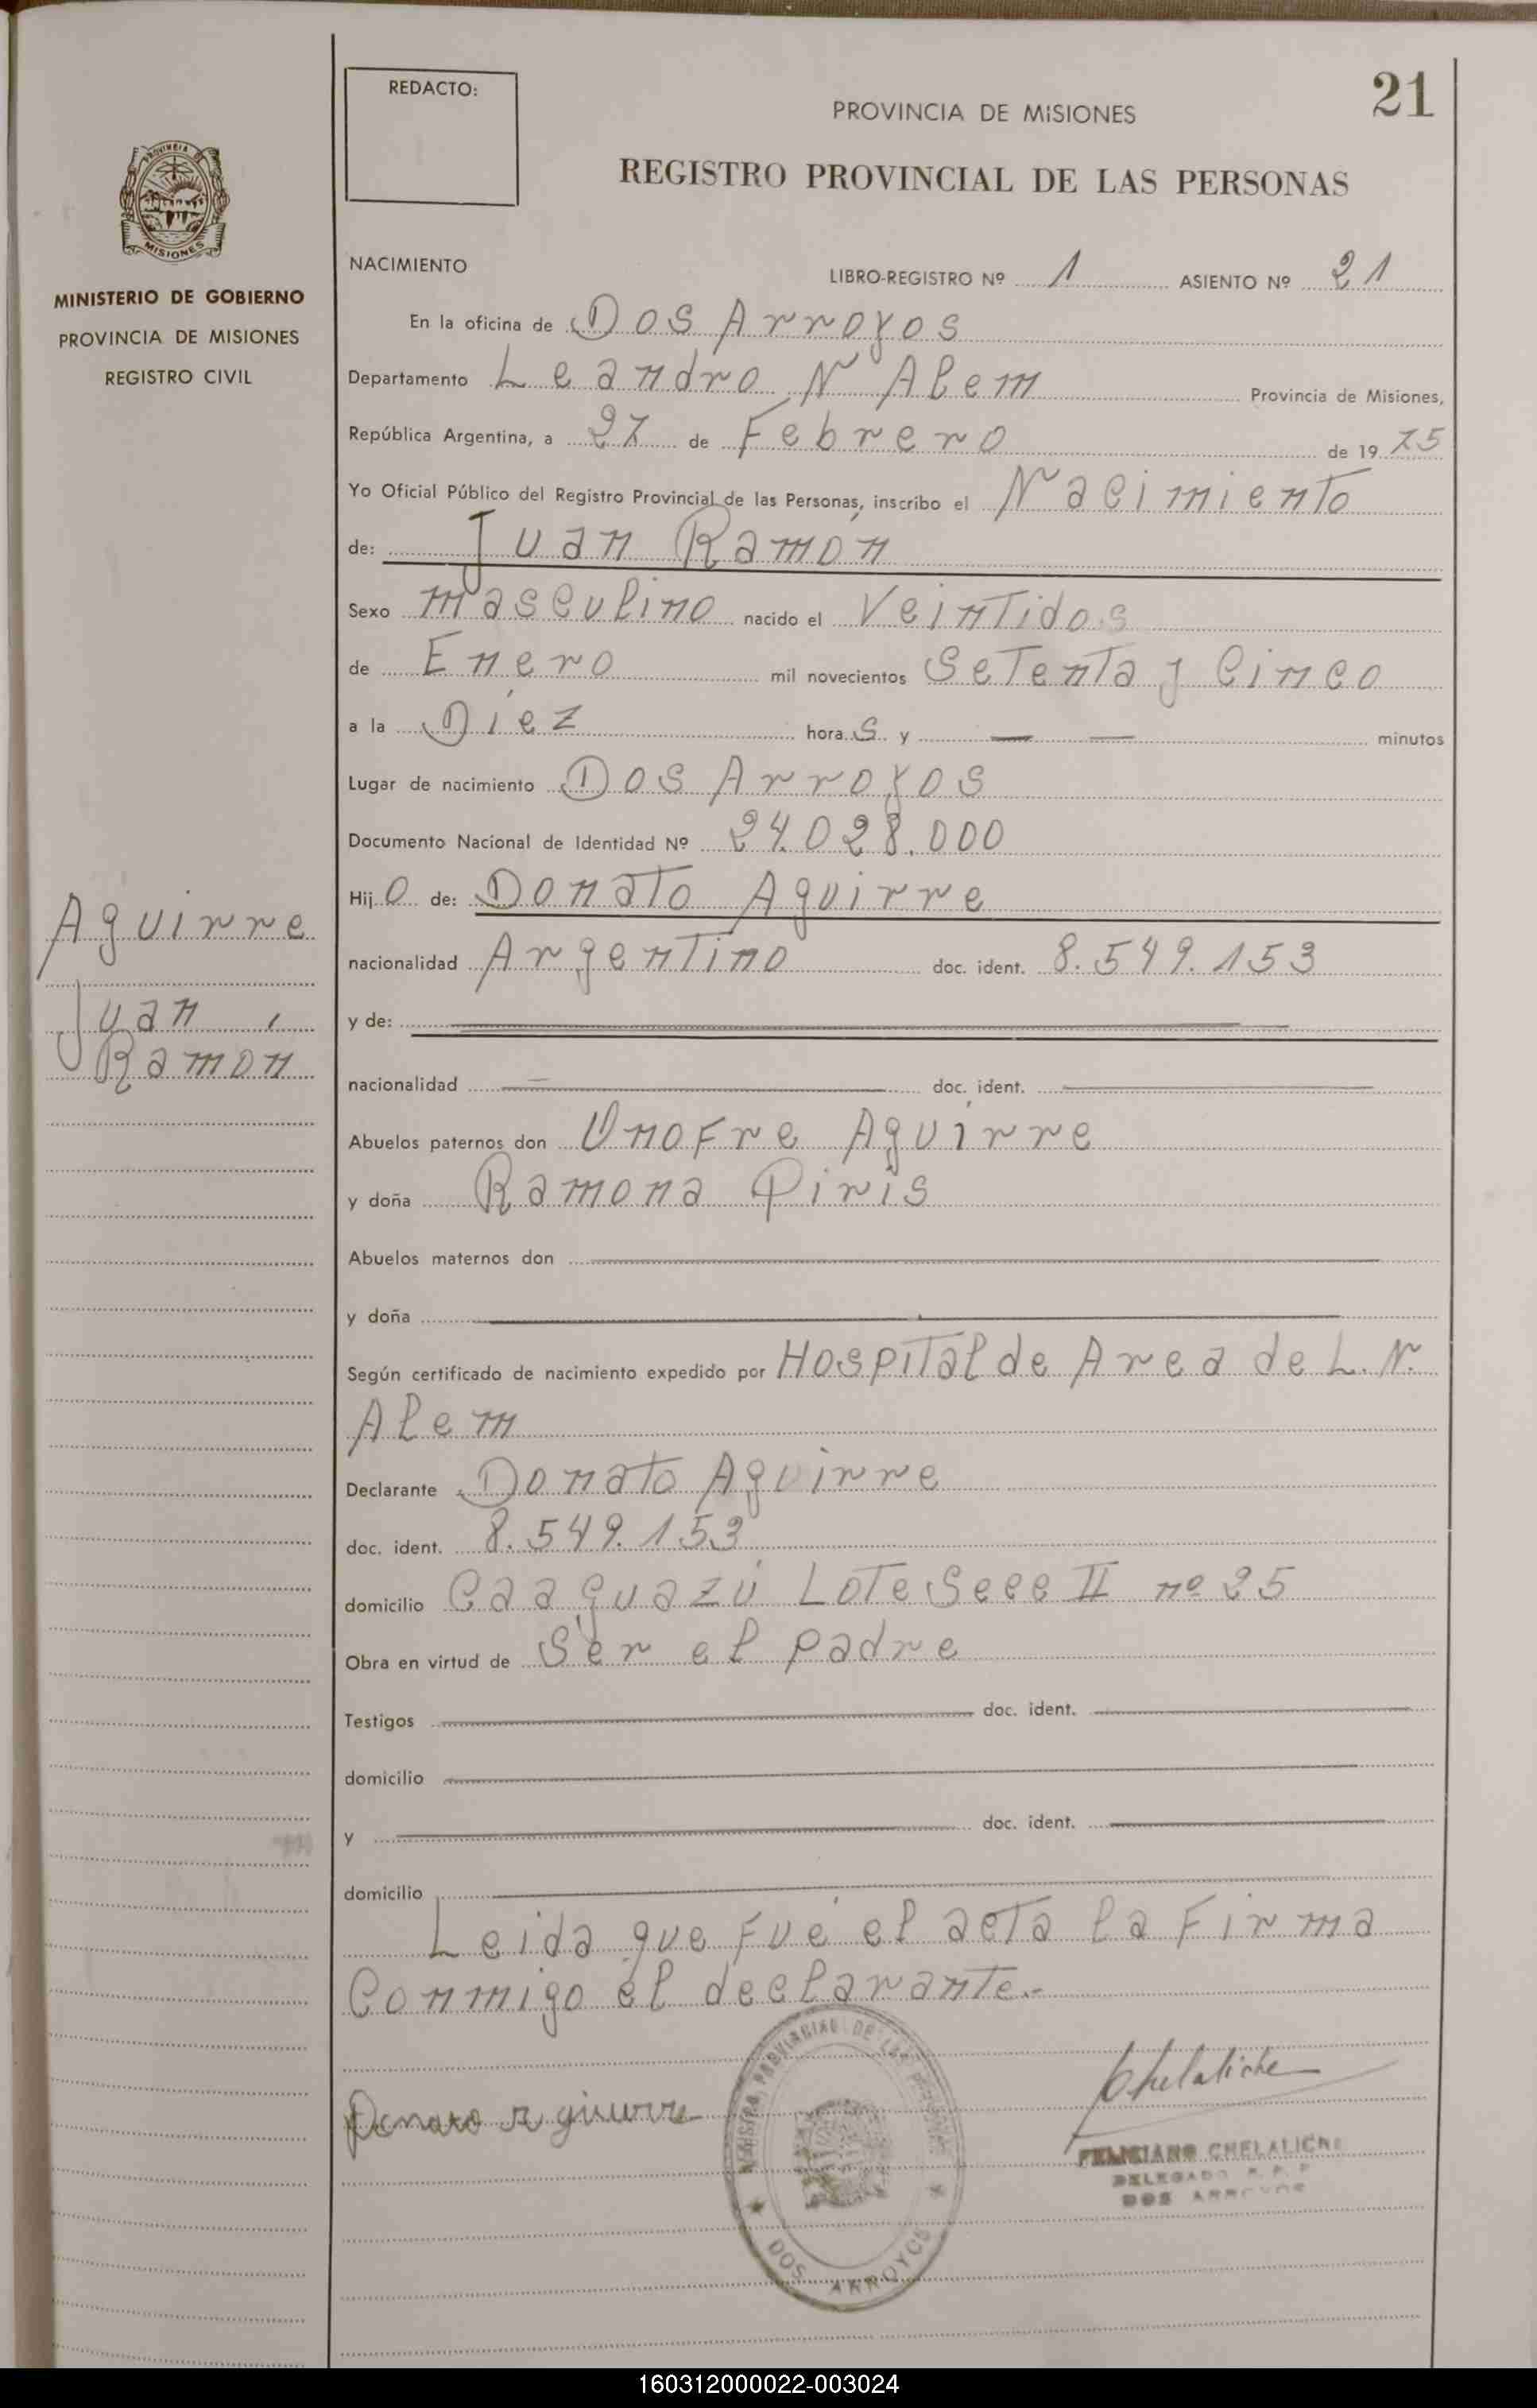 REDACTO:
21
PROVINCIA DE MISIONES
REGISTRO PROVINCIAL DE LAS PERSONAS
PROVINCIA DE
MISIONES
MINISTERIO DE GOBIERNO
PROVINCIA DE MISIONES
REGISTRO CIVIL
NACIMIENTO
LIBRO-REGISTRO Nº 1 ASIENTO Nº 21
En la oficina de Dos Arroyos
Departamento Leandro N Alem Provincia de Misiones,
República Argentina, a 27 de Febrero de 1975
Yo Oficial Público del Registro Provincial de las Personas, inscribo el Nacimiento
de: Juan Ramón
Sexo masculino nacido el Veintidos
de Enero mil novecientos Setenta y Cinco
a la Diez horas y — — minutos
Lugar de nacimiento Dos Arroyos
Documento Nacional de Identidad Nº 24.028.000
Hijo de: Donato Aguirre
nacionalidad Argentino doc. ident. 8.549.153
y de:
nacionalidad doc. ident.
Abuelos paternos don Onofre Aguirre
y doña Ramona Piris
Abuelos maternos don
y doña
Según certificado de nacimiento expedido por Hospital de Area de L. N.
Alem
Declarante Donato Aguirre
doc. ident. 8.549.153
domicilio Caaguazú Lote Secc II nº 25
Obra en virtud de Ser el padre
Testigos doc. ident.
domicilio
y doc. ident.
domicilio
Leida que fué el acta la Firma
Conmigo él declarante.-
Aguirre
Juan
Ramón
Donato Aguirre
REGISTRO PROVINCIAL DE LAS PERSONAS
DOS ARROYOS
Chelaliche
FELICIANO CHELALICHE
DELEGADO R. P. P
DOS ARROYOS
160312000022-003024